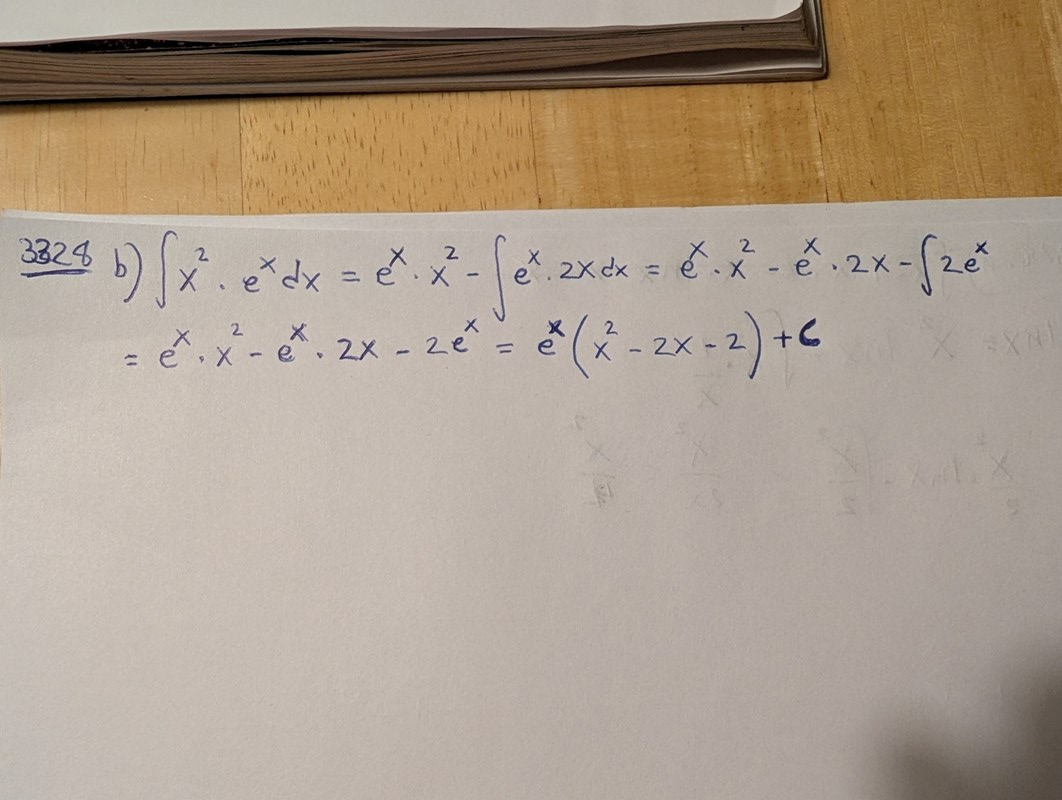 3328 b) ∫x² · eˣ dx = eˣ · x² - ∫eˣ · 2x dx = eˣ · x² - eˣ · 2x - ∫2eˣ
= eˣ · x² - eˣ · 2x - 2eˣ = eˣ(x² - 2x - 2) + C